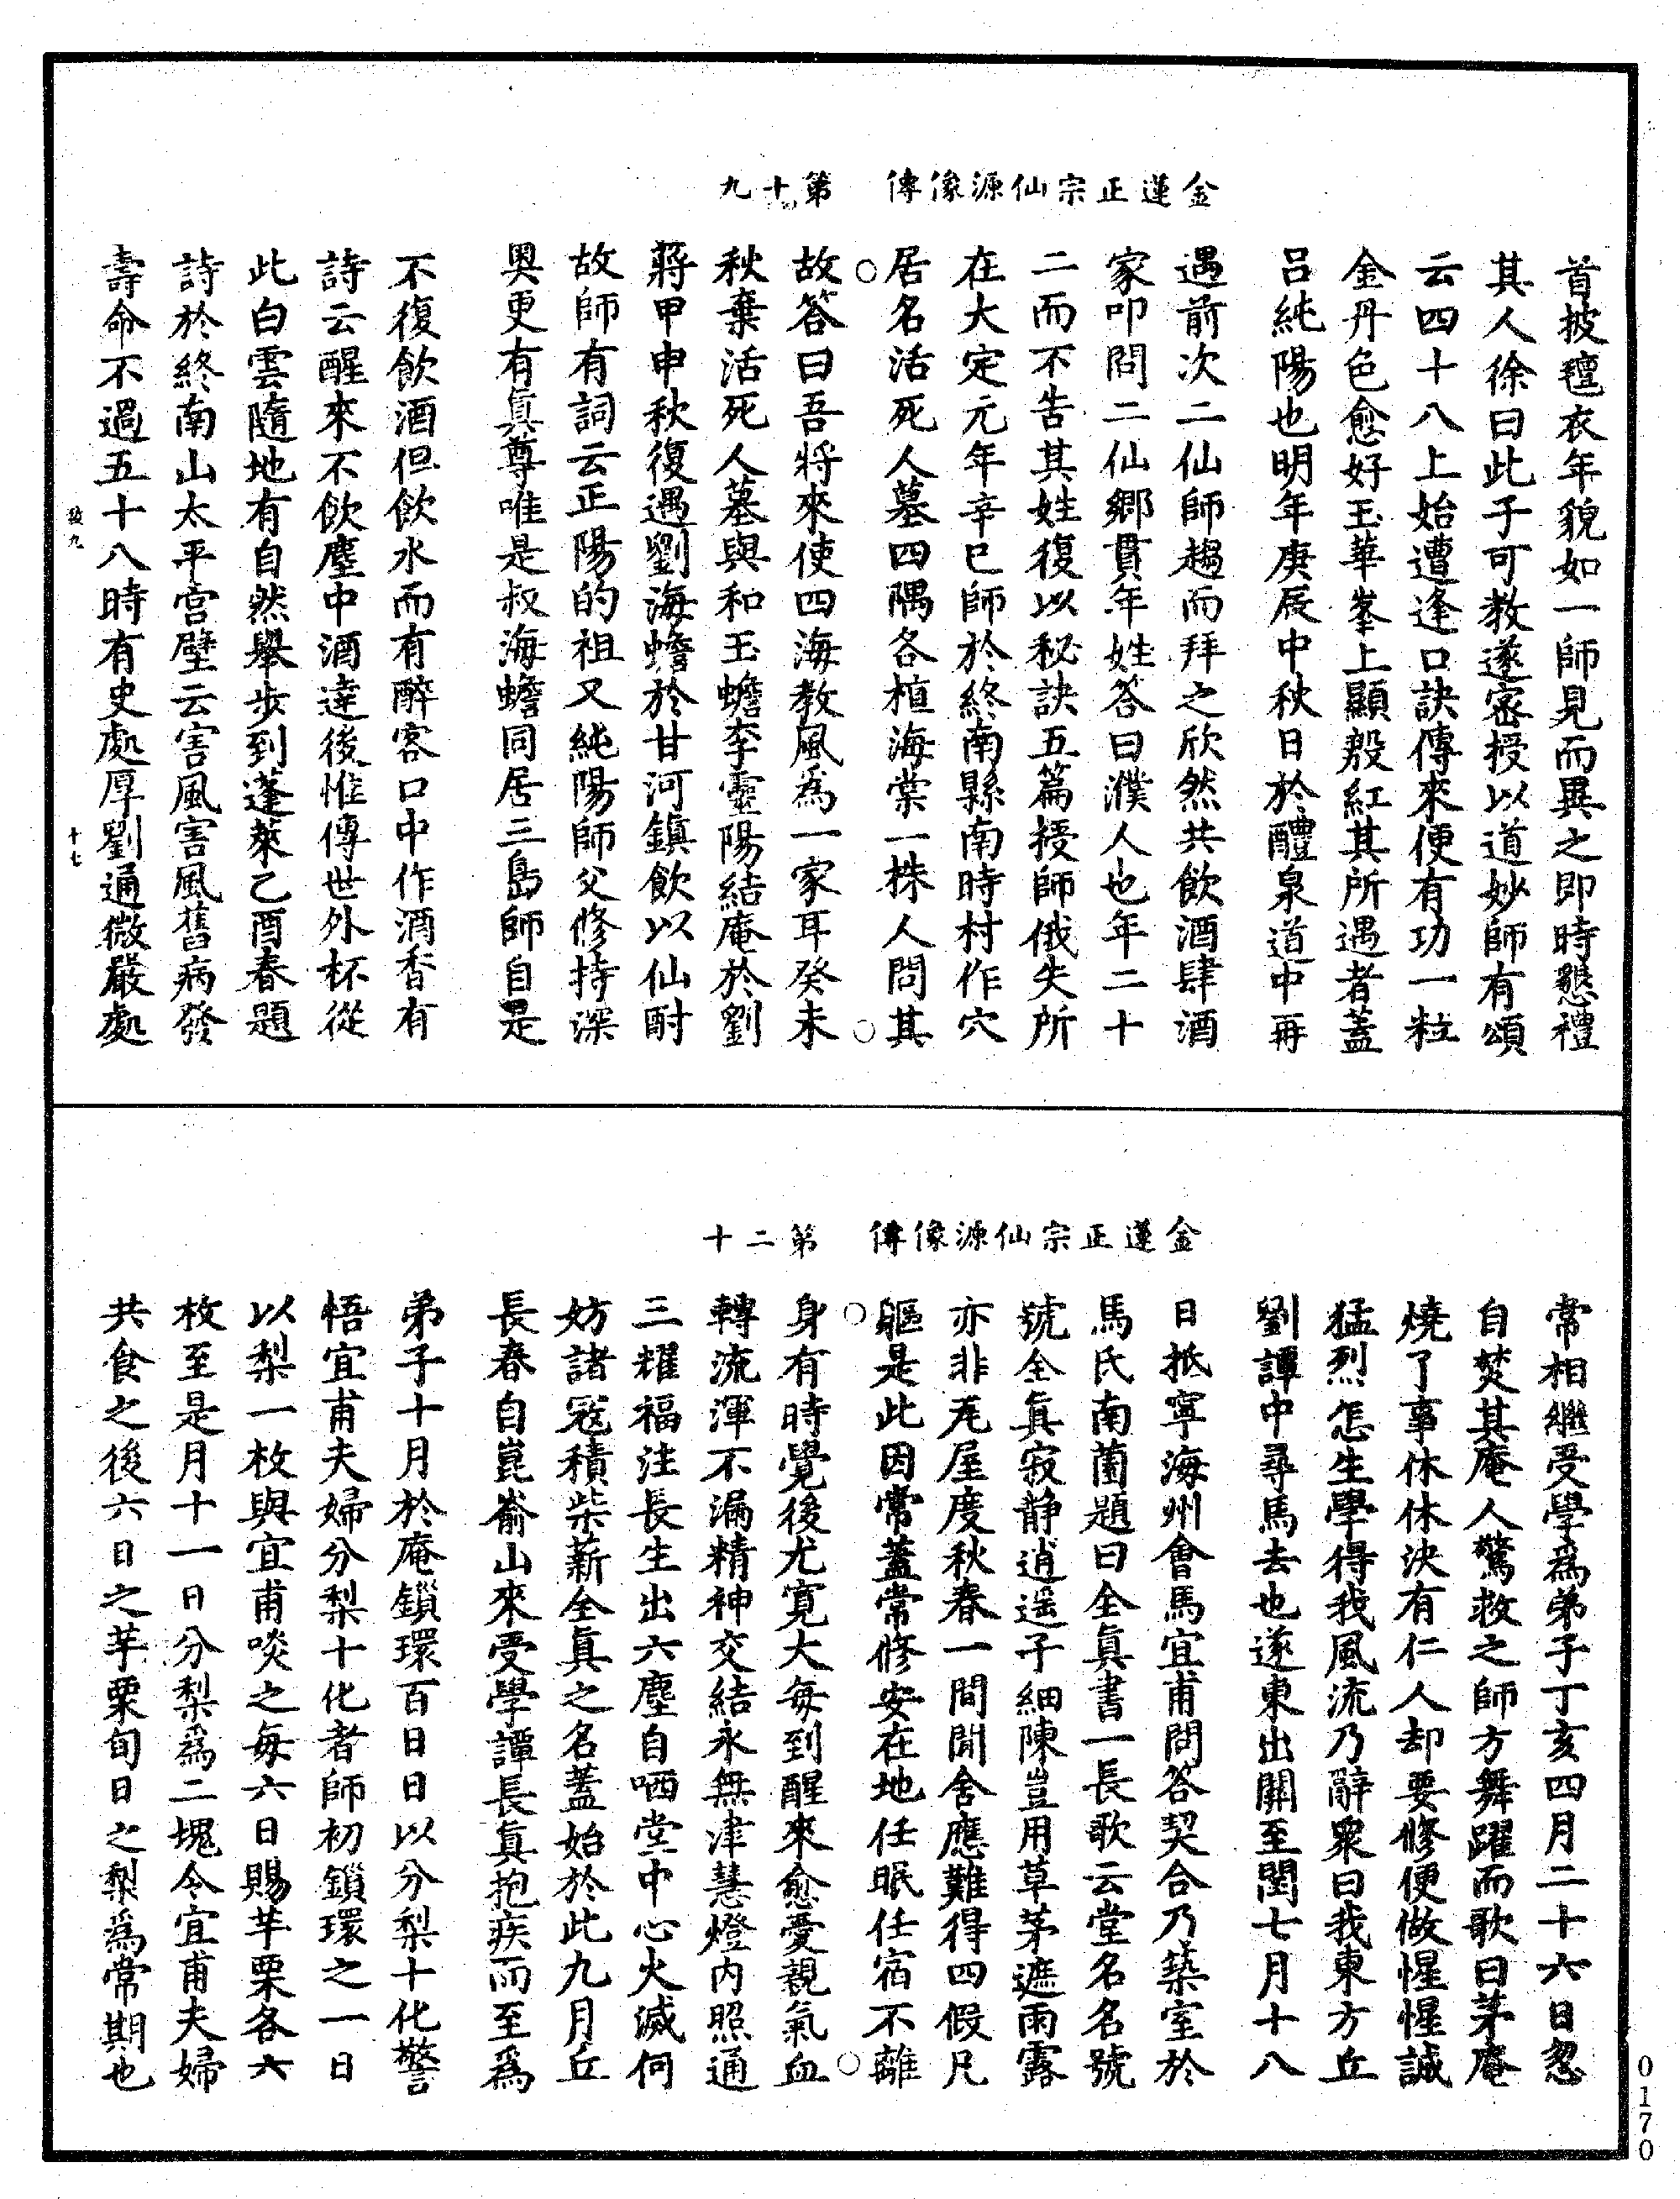 金蓮正宗仙源像傳　第十九
首披氊衣年貌如一師見而異之即時懇禮
其人徐曰此子可教遂密授以道妙師有頌
云四十八上始遭逢口訣傳來便有功一粒
金丹色愈好玉華峯上顯殷紅其所遇者蓋
呂純陽也明年庚辰中秋日於醴泉道中再
遇前次二仙師趨而拜之欣然共飲酒肆酒
家叩問二仙鄉貫年姓答曰濮人也年二十
二而不告其姓復以秘訣五篇授師俄失所
在大定元年辛巳師於終南縣南時村作穴
居名活死人墓四隅各植海棠一株人問其
故答曰吾將來使四海教風爲一家耳癸未
秋棄活死人墓與和玉蟾李靈陽結庵於劉
蔣甲申秋復遇劉海蟾於甘河鎮飲以仙酎
故師有詞云正陽的祖又純陽師父修持深
奧更有真尊唯是叔海蟾同居三島師自是
不復飲酒但飲水而有醉客口中作酒香有
詩云醒來不飲塵中酒達後惟傳世外杯從
此白雲隨地有自然舉步到蓬萊乙酉春題
詩於終南山太平宮壁云害風害風舊病發
壽命不過五十八時有史處厚劉通微嚴處
致九　十七
金蓮正宗仙源像傳　第二十
常相繼受學爲弟子丁亥四月二十六日忽
自焚其庵人驚救之師方舞躍而歌曰茅庵
燒了事休休決有仁人却要修便做惺惺誠
猛烈怎生學得我風流乃辭衆曰我東方丘
劉譚中尋馬去也遂東出關至閏七月十八
日抵寧海州會馬宜甫問答契合乃築室於
馬氏南園題曰全真書一長歌云堂名名號
號全真寂靜逍遥子細陳豈用草茅遮雨露
亦非瓦屋度秋春一間閒舍應難得四假凡
軀是此因常蓋常修安在地任眠任宿不離
身有時覺後尤寬大每到醒來愈愛親氣血
轉流渾不漏精神交結永無津慧燈內照通
三耀福注長生出六塵自哂堂中心火滅何
妨諸寇積柴薪全真之名蓋始於此九月丘
長春自崑崳山來受學譚長真抱疾而至爲
弟子十月於庵鎖環百日日以分梨十化警
悟宜甫夫婦分梨十化者師初鎖環之一日
以梨一枚與宜甫啖之每六日賜芋栗各六
枚至是月十一日分梨爲二塊令宜甫夫婦
共食之後六日之芋栗旬日之梨爲常期也
0170